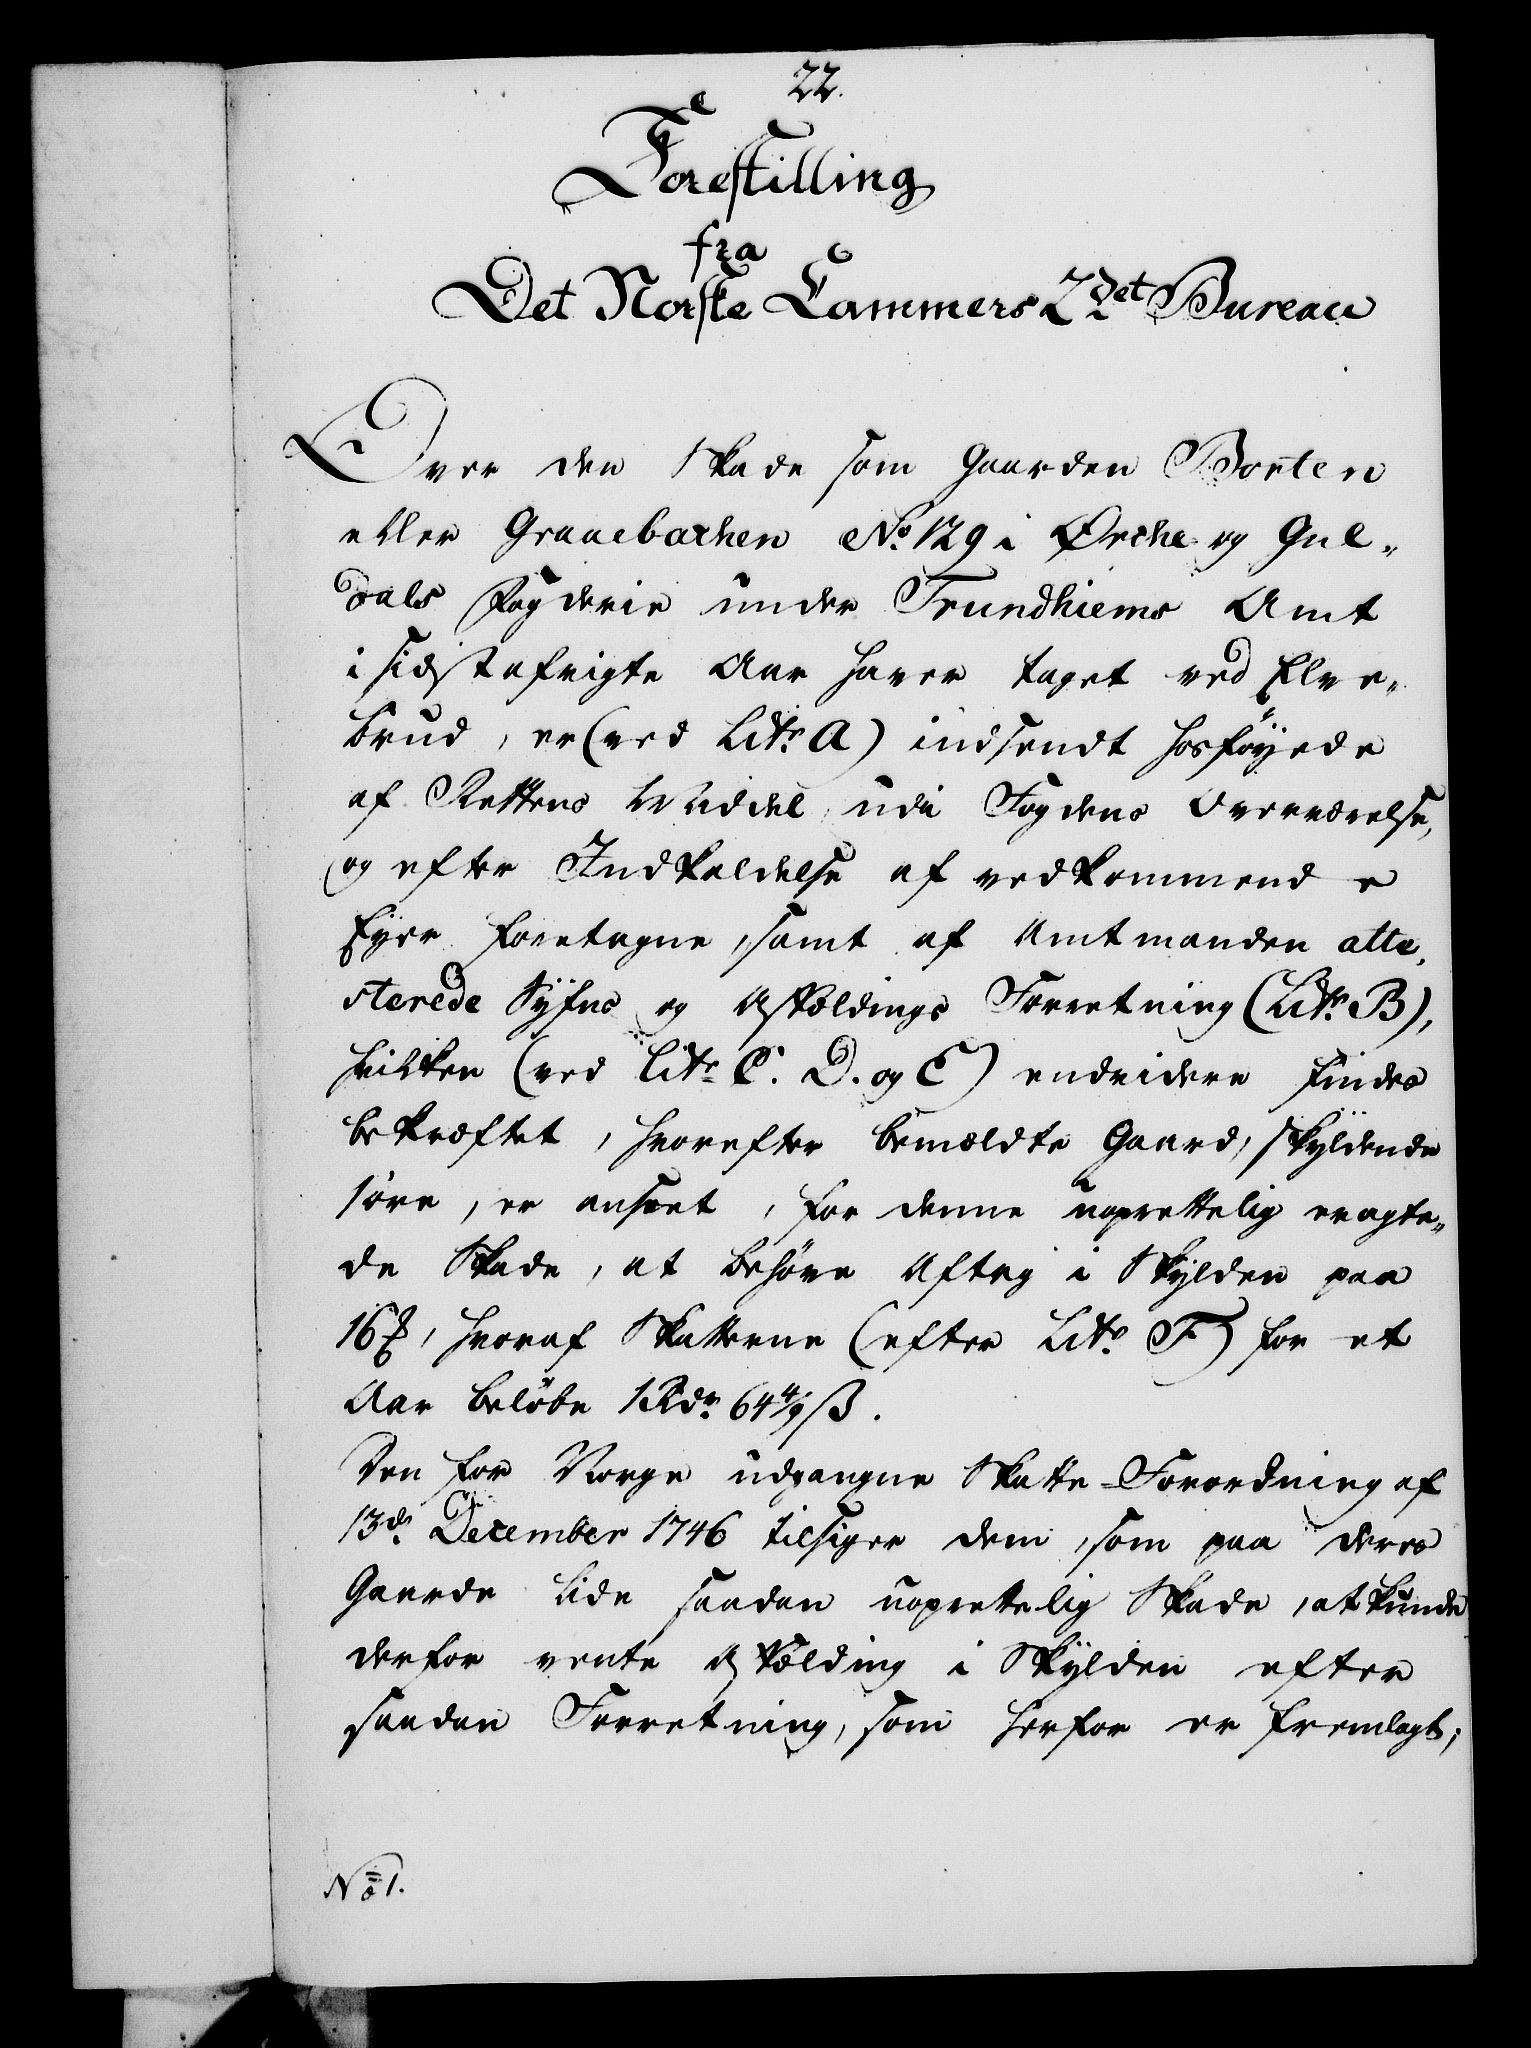 22.
Forestilling
fra
Det Norske Cammers 2det Bureau
Over den Skade som Gaarden Borten
eller Graaebachen No. 129 i Ørche og Gul„
dals Fogderie under Trundhiems Amt
i sidstafvigte Aar haver taget ved Elve„
brud, er (ved Litr. A) indsendt hosføyede
af Rettens Middel, udi Fogdens Overværelse,
og efter Indkaldelse af vedkommende
Eyer foretagne, samt af Amtmanden atte„
sterede Syfns og Afkældings Forretning (Litr. B),
hvilken (ved Litr. C. D. og E) endvidere findes
bekræftet, hvorefter bemældte Gaard, skyldende
1 øre, er anseet, for denne uoprettelig eragte„
de Skade, at behøve Aftag i Skylden paa
16 ₰, hvoraf Skatterne (efter Litr. F) for et
Aar beløbe 1 Rdr. 64 4/9 ß.
Den for Norge udgangne Skatte-Forordning af
13de December 1746 tilsiger dem, som paa deres
Gaarde lide saadan uoprettelig Skade, at kunde
derfor vente Afkælding i Skylden efter
saadan Forretning, som herfor er fremlagt;
No. 1.